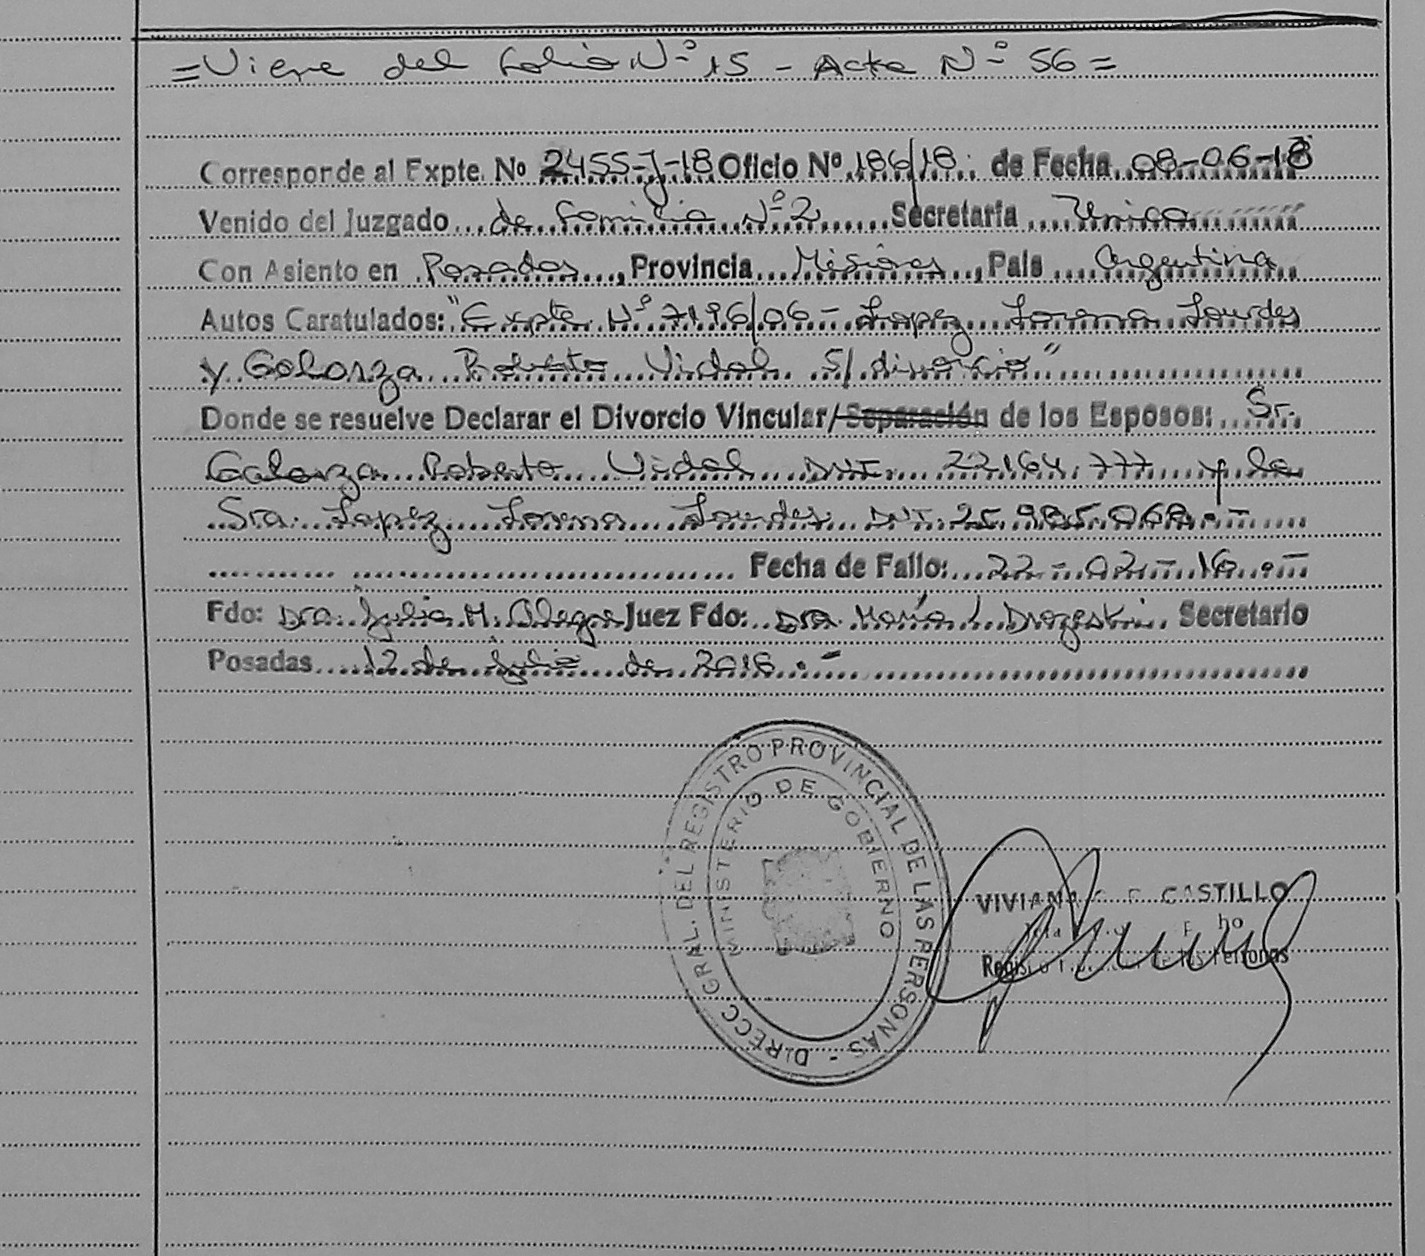 =Viene del folio Nº 15 - Acta Nº 56=
Corresponde al Expte. No 2455-J-18 Oficio Nº 186/18. de Fecha 08-06-18
Venido del Juzgado de Familia Nº 2 Secretaria Unica
Con Asiento en Posadas, Provincia Misiones, Pais Argentina
Autos Caratulados: "Expte. Nº 7196/06 - Lopez Lorena Lourdes
y Galarza Roberto Vidal S/ divorcio"
Donde se resuelve Declarar el Divorcio Vincular/Separación de los Esposos: Sr.
Galarza Roberto Vidal DNI. 22.164.777 y la
Sra. Lopez Lorena Lourdes DNI. 25.985.068.-
Fecha de Fallo: 22-02-16.-
Fdo: Dra. Julia M. Alegre Juez Fdo: Dra. María L. Secretario
Posadas 12 de Julio de 2018.-
DIRECC GRAL. DEL REGISTRO PROVINCIAL DE LAS PERSONAS -
MINISTERIO DE GOBIERNO
VIVIANA CASTILLO
Personas